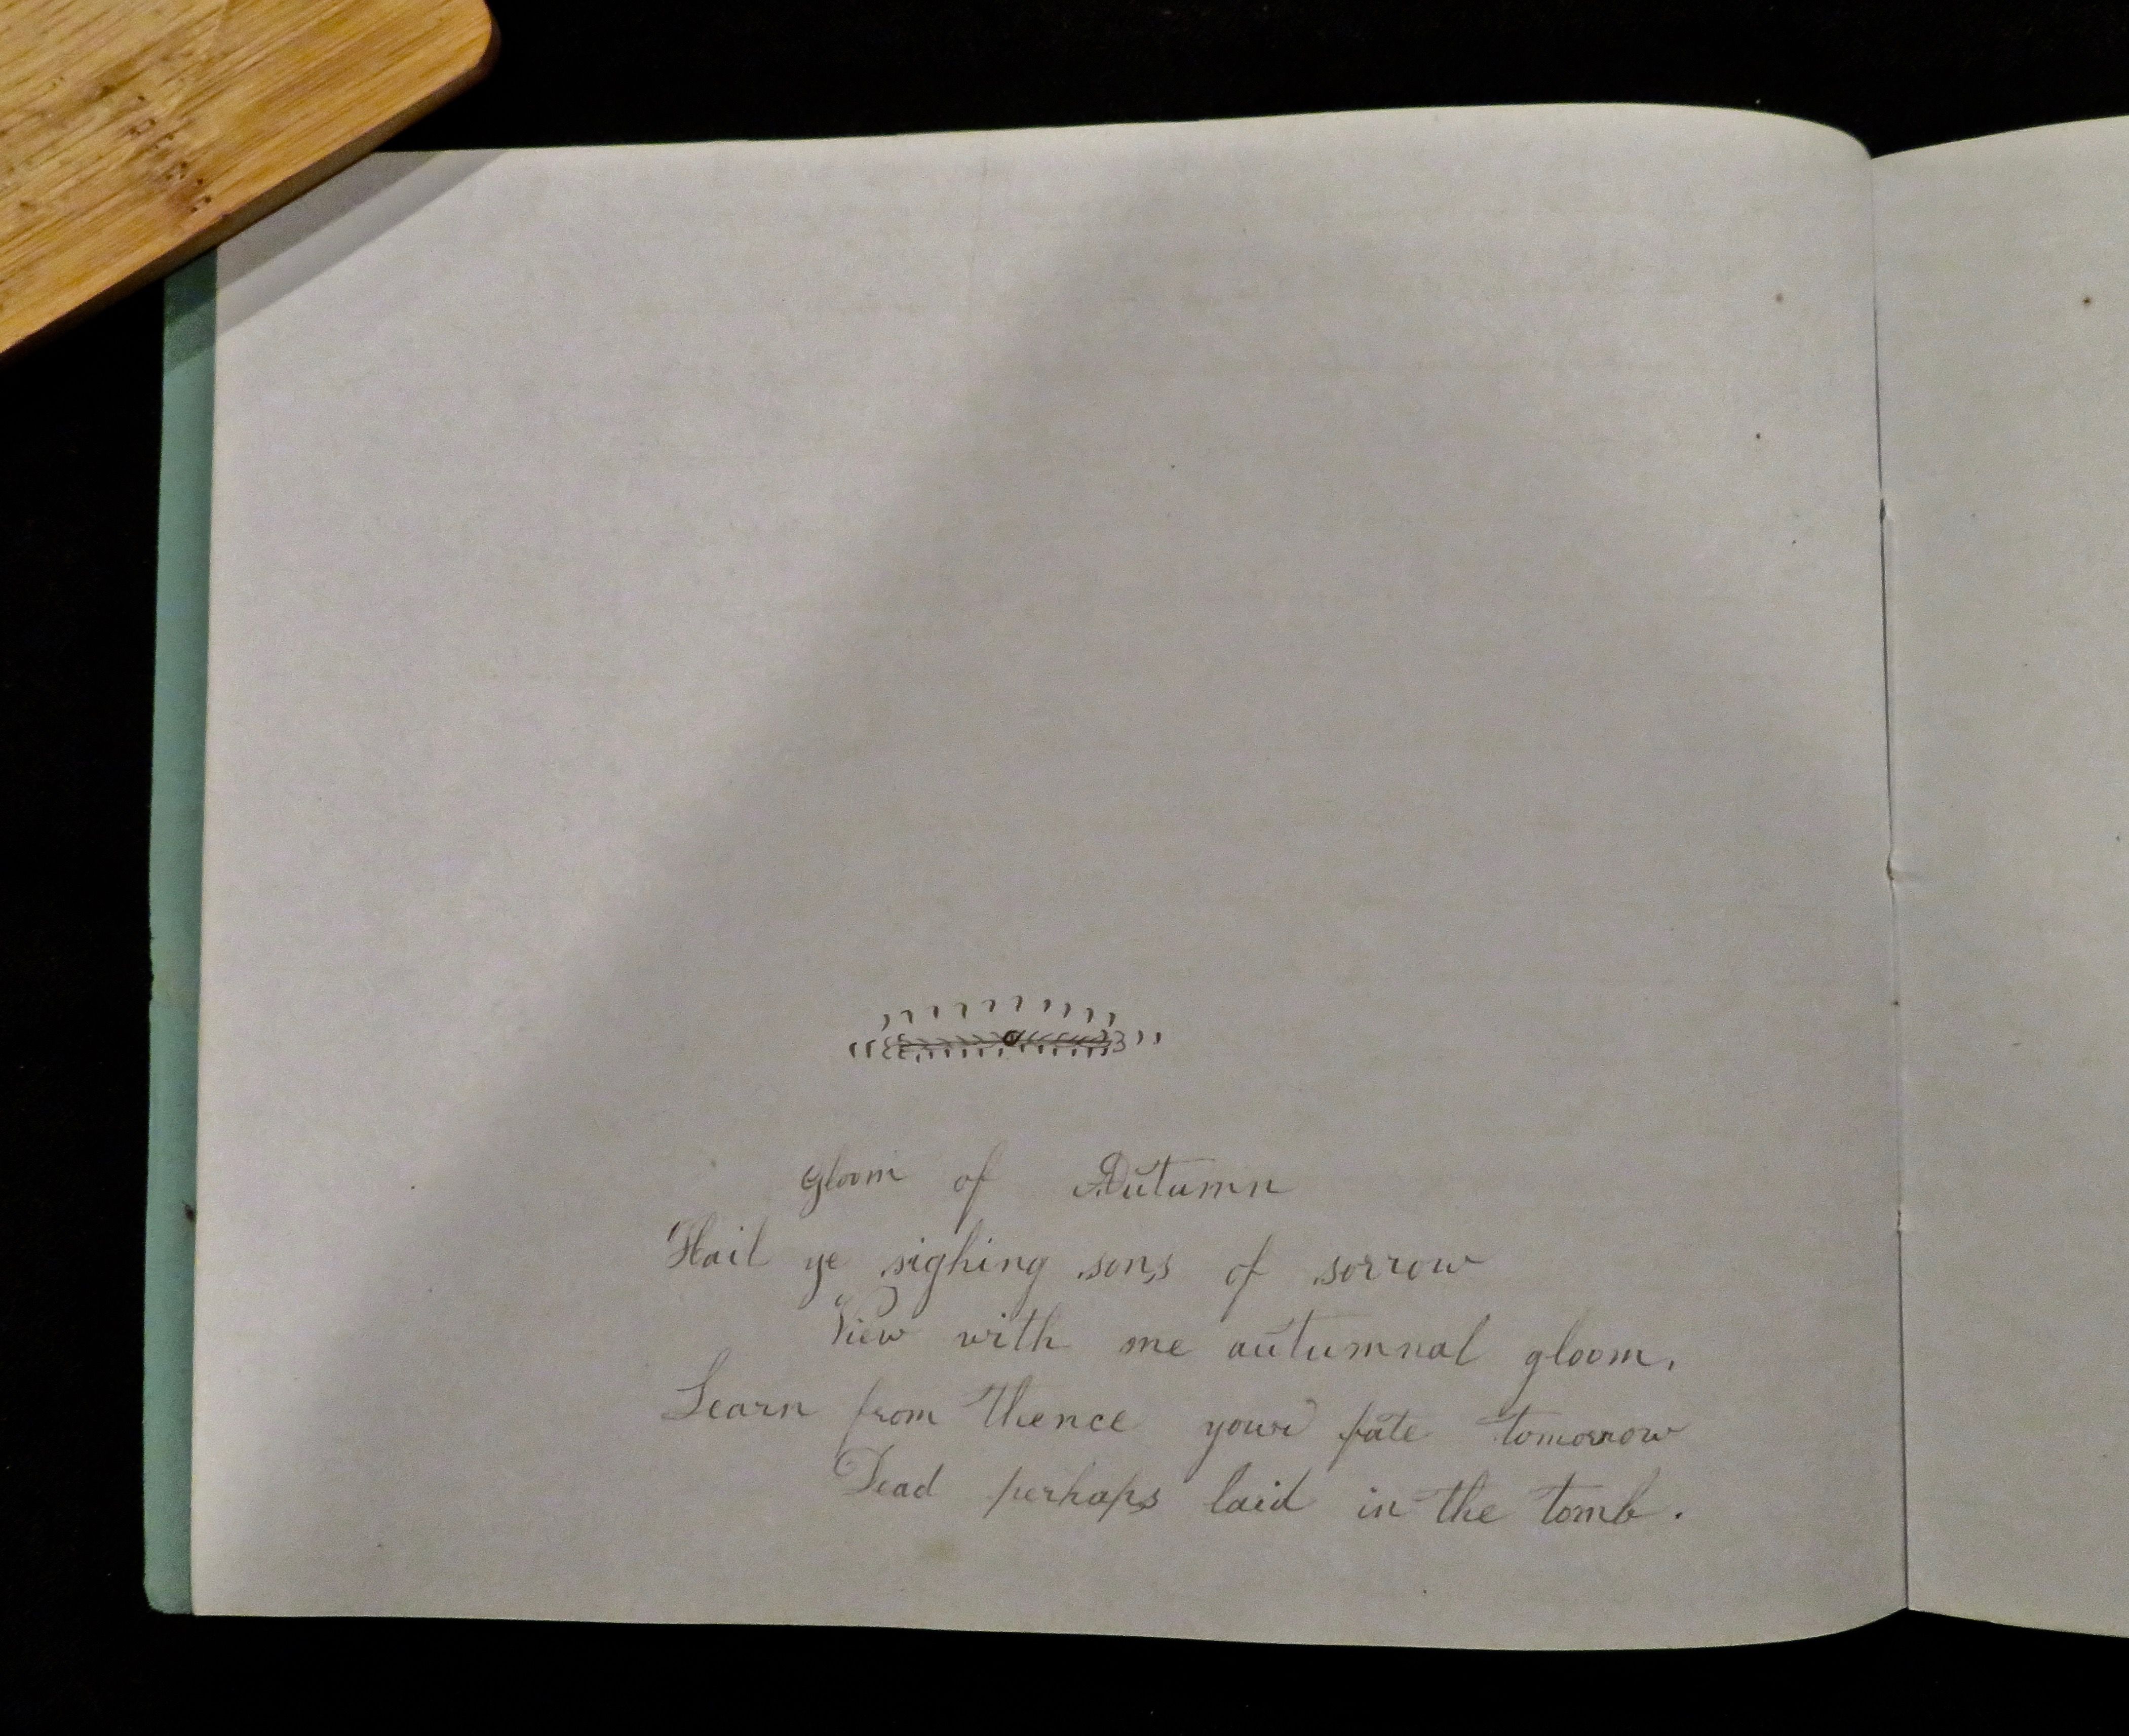 Gloom of Autumn
Hail ye sighing sons of sorrow
View with me autumnal gloom.
Learn from thence your fate tomorrow
Dead perhaps laid in the tomb.